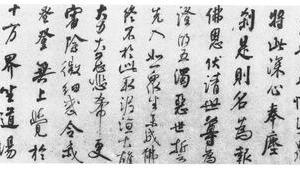 將此深心奉塵
刹是則名為報
佛恩伏請世尊為
證明五濁惡世誓
先入如一衆生未成佛
終不於此取泥洹大雄
大力大慈悲希更
審除微細惑令我
早登無上覺於
十方界坐道場